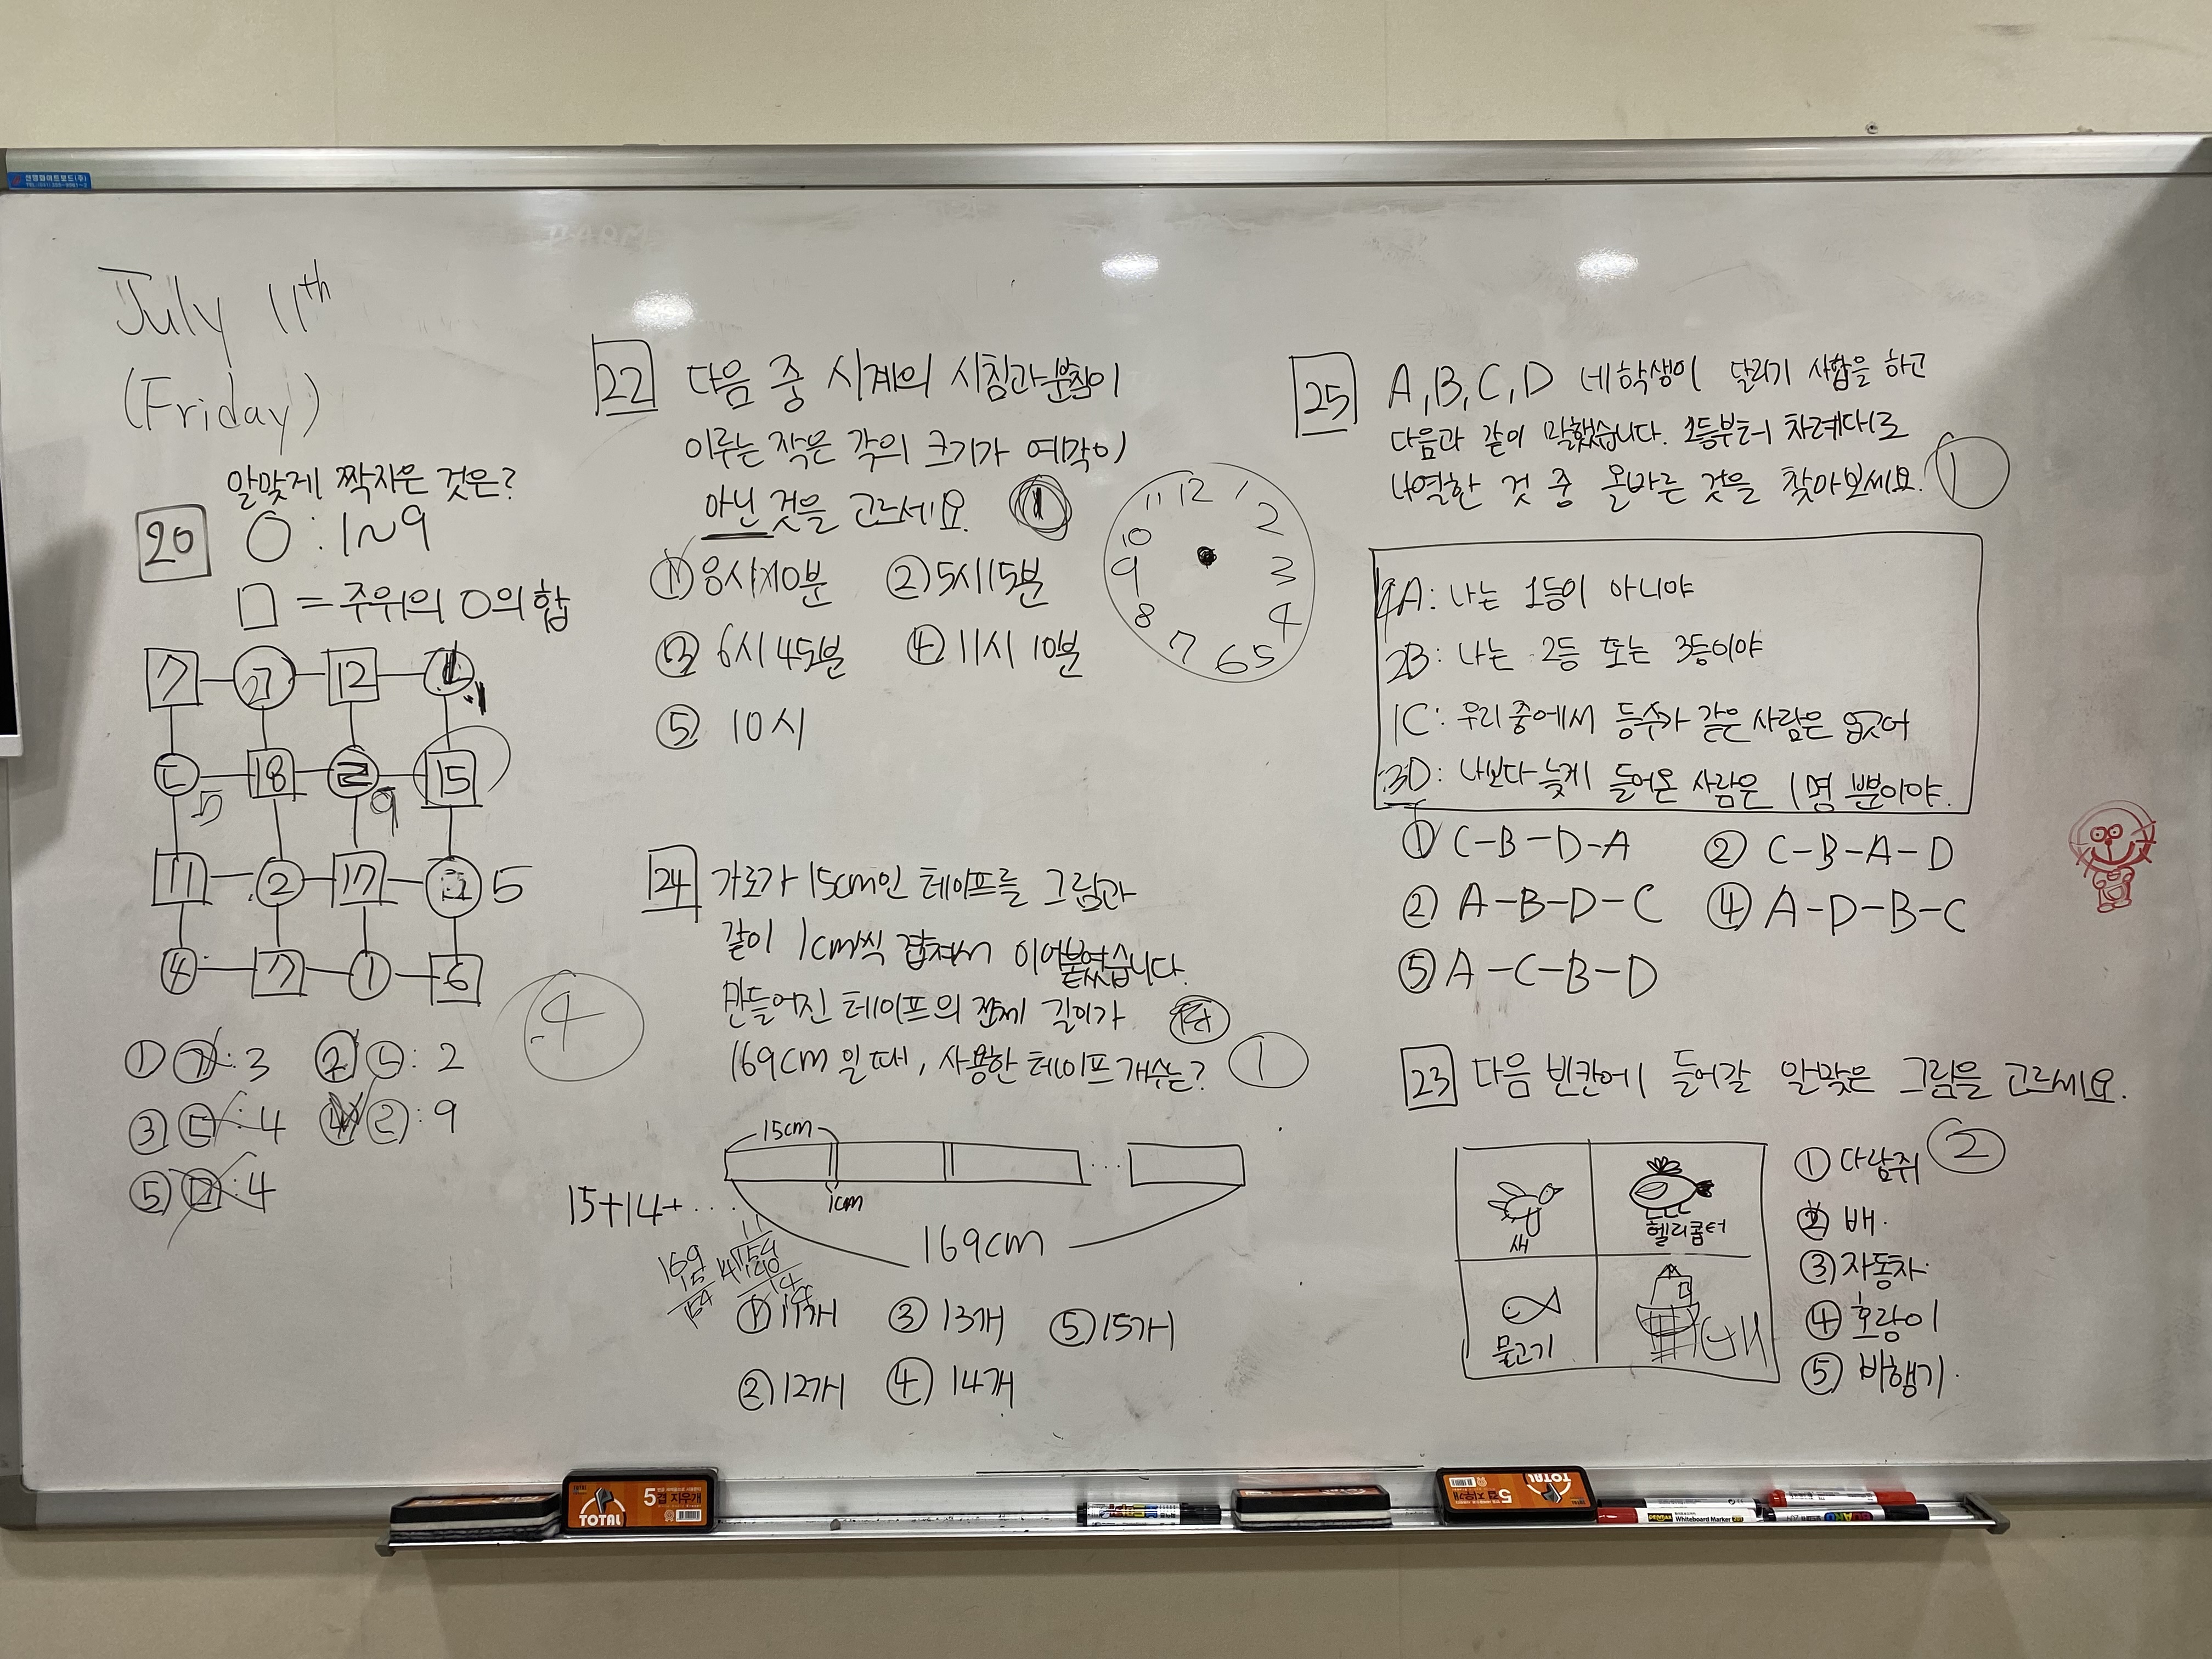 July 11th
(Friday)
알맞게 짝지은 것은?
20 ○ : 1~9
□ = 주위의 ○의 합
7 12
18 9 15
5
11 2 17 5
4 7 1 6
4
① ㄱ: 3 ② ㄴ: 2
③ ㄷ: 4 ④ ㄹ: 9
⑤ ㅁ: 4
22 다음 중 시계의 시침과 분침이
이루는 작은 각의 크기가 예각이
아닌 것을 고르세요. ①
① 8시 분 ② 5시 15분
③ 6시 45분 ④ 11시 10분
⑤ 10시
12 1 2 3 4 5 6 7 8 9 10 11
24 가로가 15cm인 테이프를 그림과
같이 1cm씩 겹쳐서 이어붙였습니다.
만들어진 테이프의 전체 길이가
169cm 일 때, 사용한 테이프 개수는? ①
15cm
1cm
15+14+ ...
169cm
169
15
154
14
11
154
14
14
① 11개 ③ 13개 ⑤ 15개
② 12개 ④ 14개
25 A, B, C, D 네 학생이 달리기 시합을 하고
다음과 같이 말했습니다. 1등부터 차례대로
나열한 것 중 올바른 것을 찾아보세요. ①
4A: 나는 1등이 아니야
2B: 나는 2등 또는 3등이야
1C: 우리 중에서 등수가 같은 사람은 없어
3D: 나보다 늦게 들어온 사람은 1명 뿐이야.
① C-B-D-A ② C-B-A-D
② A-B-D-C ④ A-D-B-C
⑤ A-C-B-D
23 다음 빈칸에 들어갈 알맞은 그림을 고르세요.
②
새 헬리콥터
물고기 배
① 다람쥐
② 배.
③ 자동차.
④ 호랑이
⑤ 비행기.
TOTAL
5겹 지우개
TOTAL
5
Whiteboard Marker